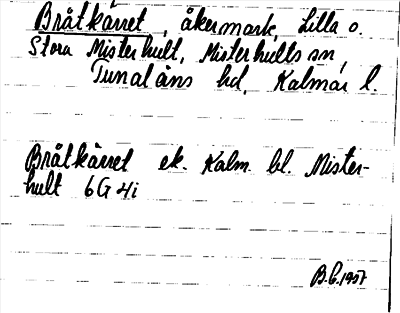 Bråtkärret, åkermark, Lilla o.
Stora Misterhult, Misterhults sn,
Tunaläns hd, Kalmar l.
Bråtkärret ek. Kalm. bl. Mister-
hult 6G4i
B.C. 1957